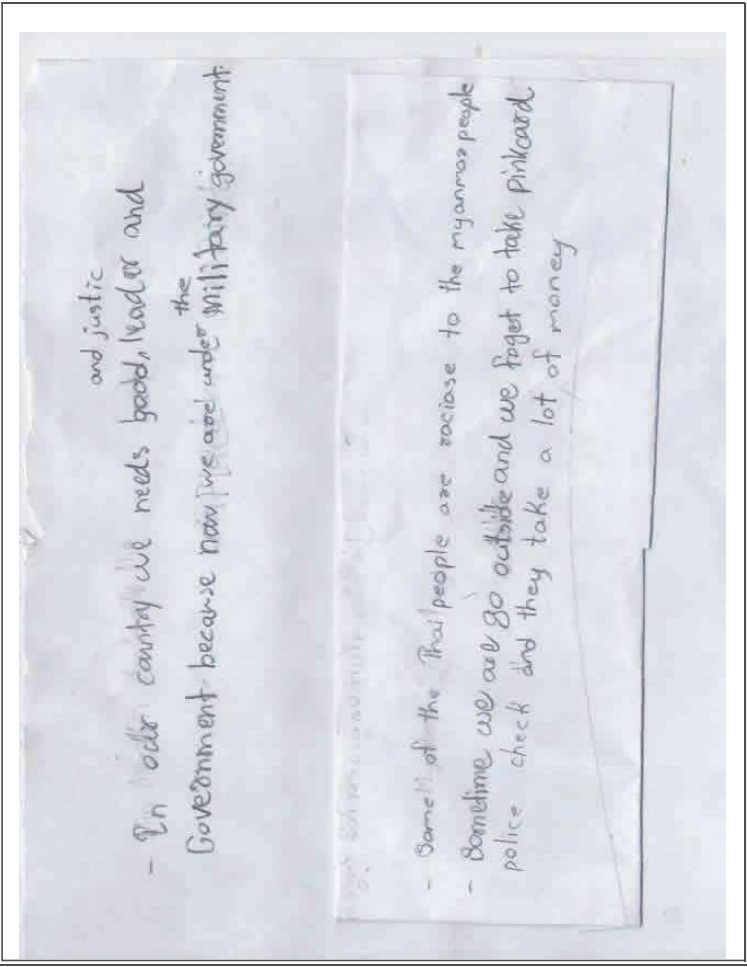 and justic
- In our country we needs good, leader and
the
Government because now we are under Military government
- Some of the Thai people are raciase to the myanmar people
- Sometime we are go outside and we foget to take pinkcard
police check and they take a lot of money